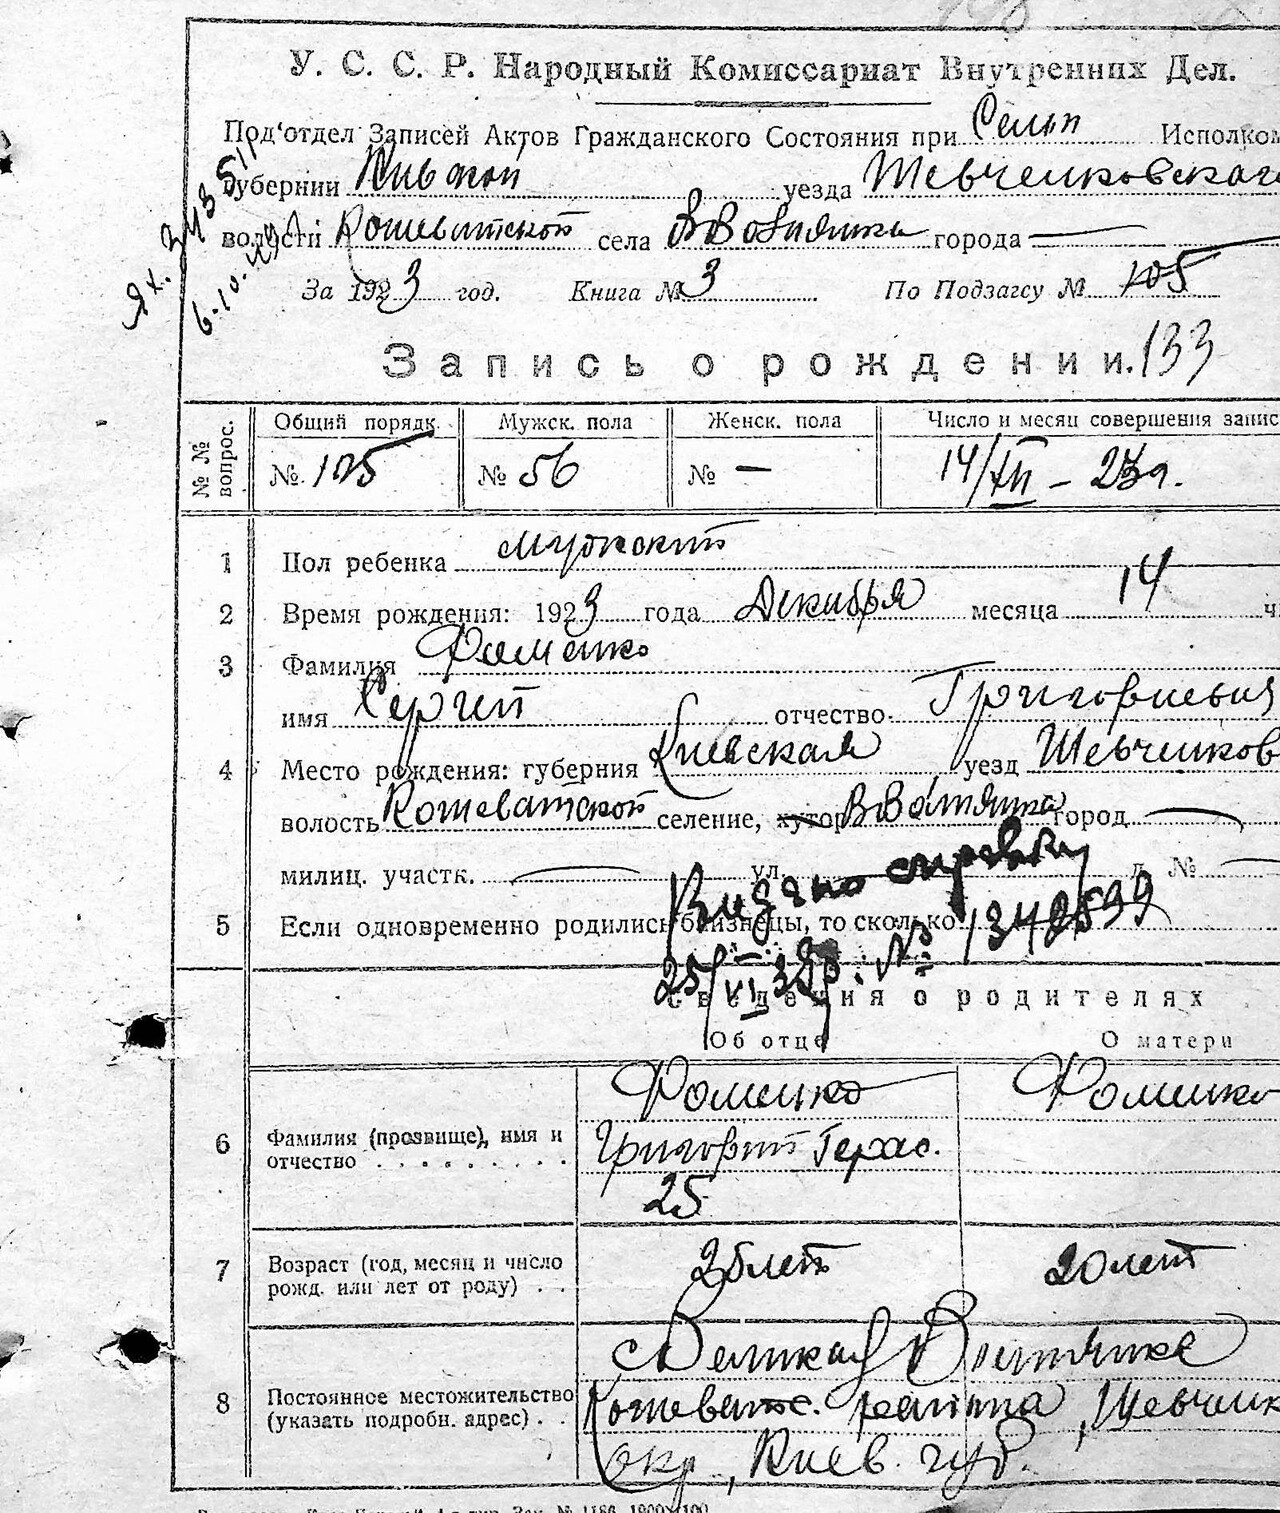 У. С. С. Р. Народный Комиссариат Внутренних Дел.
Под'отдел Записей Актов Гражданского Состояния при Сельп Исполком
губернии Киевской уезда Шевченковского
волости Кошеватской села В Вовнянка города —
За 1923 год. Книга № 3 По Подзагсу № 105
Запись о рождении. 133
№ № вопрос.
Общий порядк. Мужск. пола Женск. пола Число и месяц совершения запис
№ 125 № 56 № — 14/XII – 23 г.
1 Пол ребенка мужской
2 Время рождения: 1923 года Декабря месяца 14 ч
3 Фамилия Фоменко
имя Сергей отчество Григориевич
4 Место рождения: губерния Киевская уезд Шевченков
волость Кошеватской селение, хутор В город —
милиц. участк. — ул. д. № —
Видано справку
5 Если одновременно родились близнецы, то сколько
25/VI № 1348599
Сведения о родителях
Об отце О матери
Фоменко Фоменко
6 Фамилия (прозвище), имя и отчество Григорий Герас.
25
7 Возраст (год, месяц и число рожд. или лет от роду) 25 лет 20 лет
с Великая
8 Постоянное местожительство (указать подробн. адрес) Кошеватс. района, Шевченк
окр., Киев. губ.